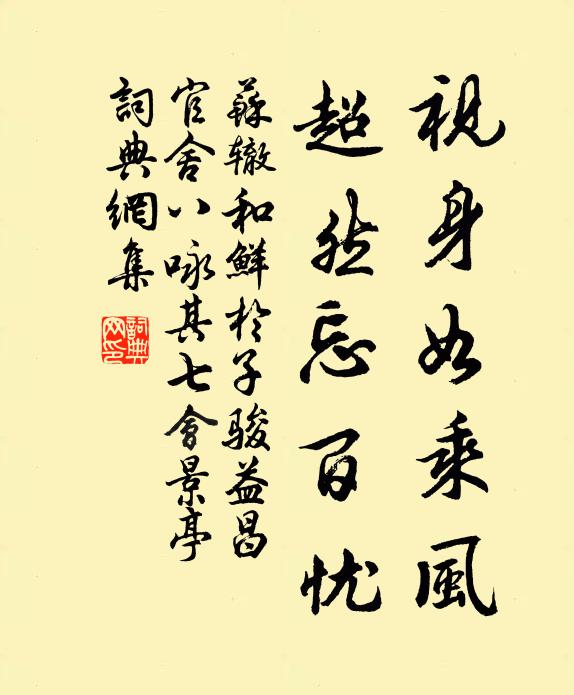 視身如乘風
超然忘百忧
蘇辙和鮮於子骏益昌
官舍八咏其七會景亭
詞典網集
詞典网印